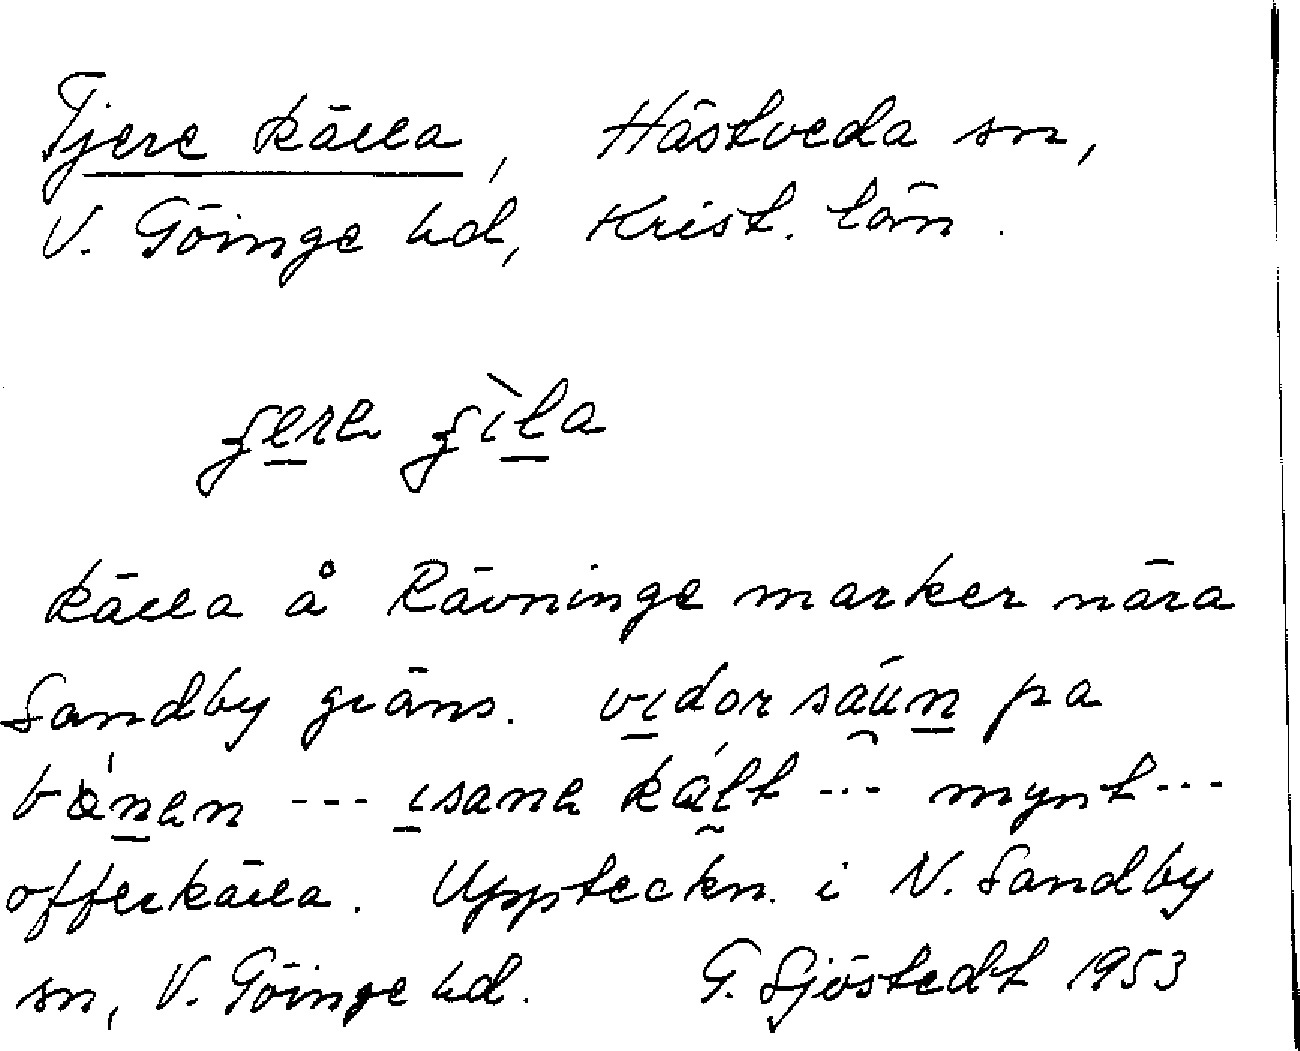 Tjere källa, Hästveda sn,
V. Göinge hd, Krist. län.
källa å Rävninge marker nära
Sandby gräns. vidor säún pa
--- isana kált --- mynt ---
offerkälla. Uppteckn. i N. Sandby
sn, V. Göinge hd. G. Sjöstedt 1953